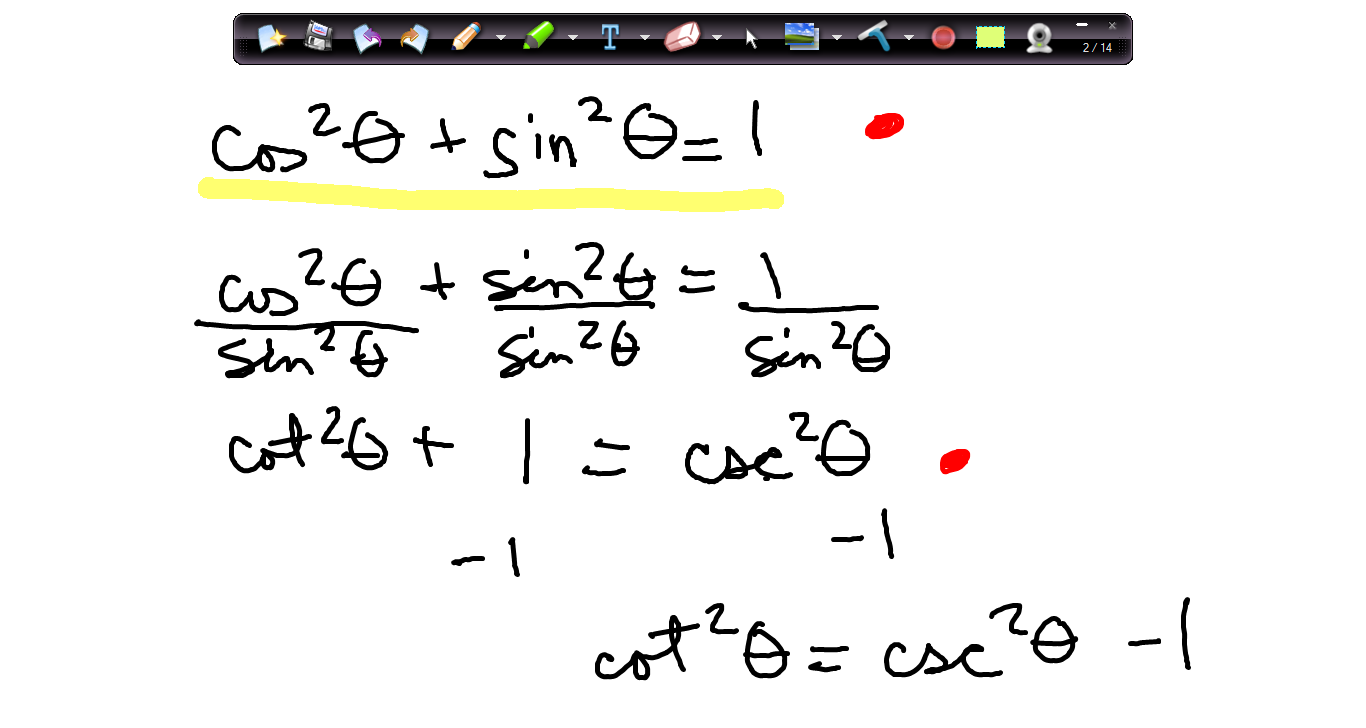 T
2 / 14
cos²θ + sin²θ = 1
cos²θ/sin²θ + sin²θ/sin²θ = 1/sin²θ
cot²θ + 1 = csc²θ
-1 -1
cot²θ = csc²θ -1